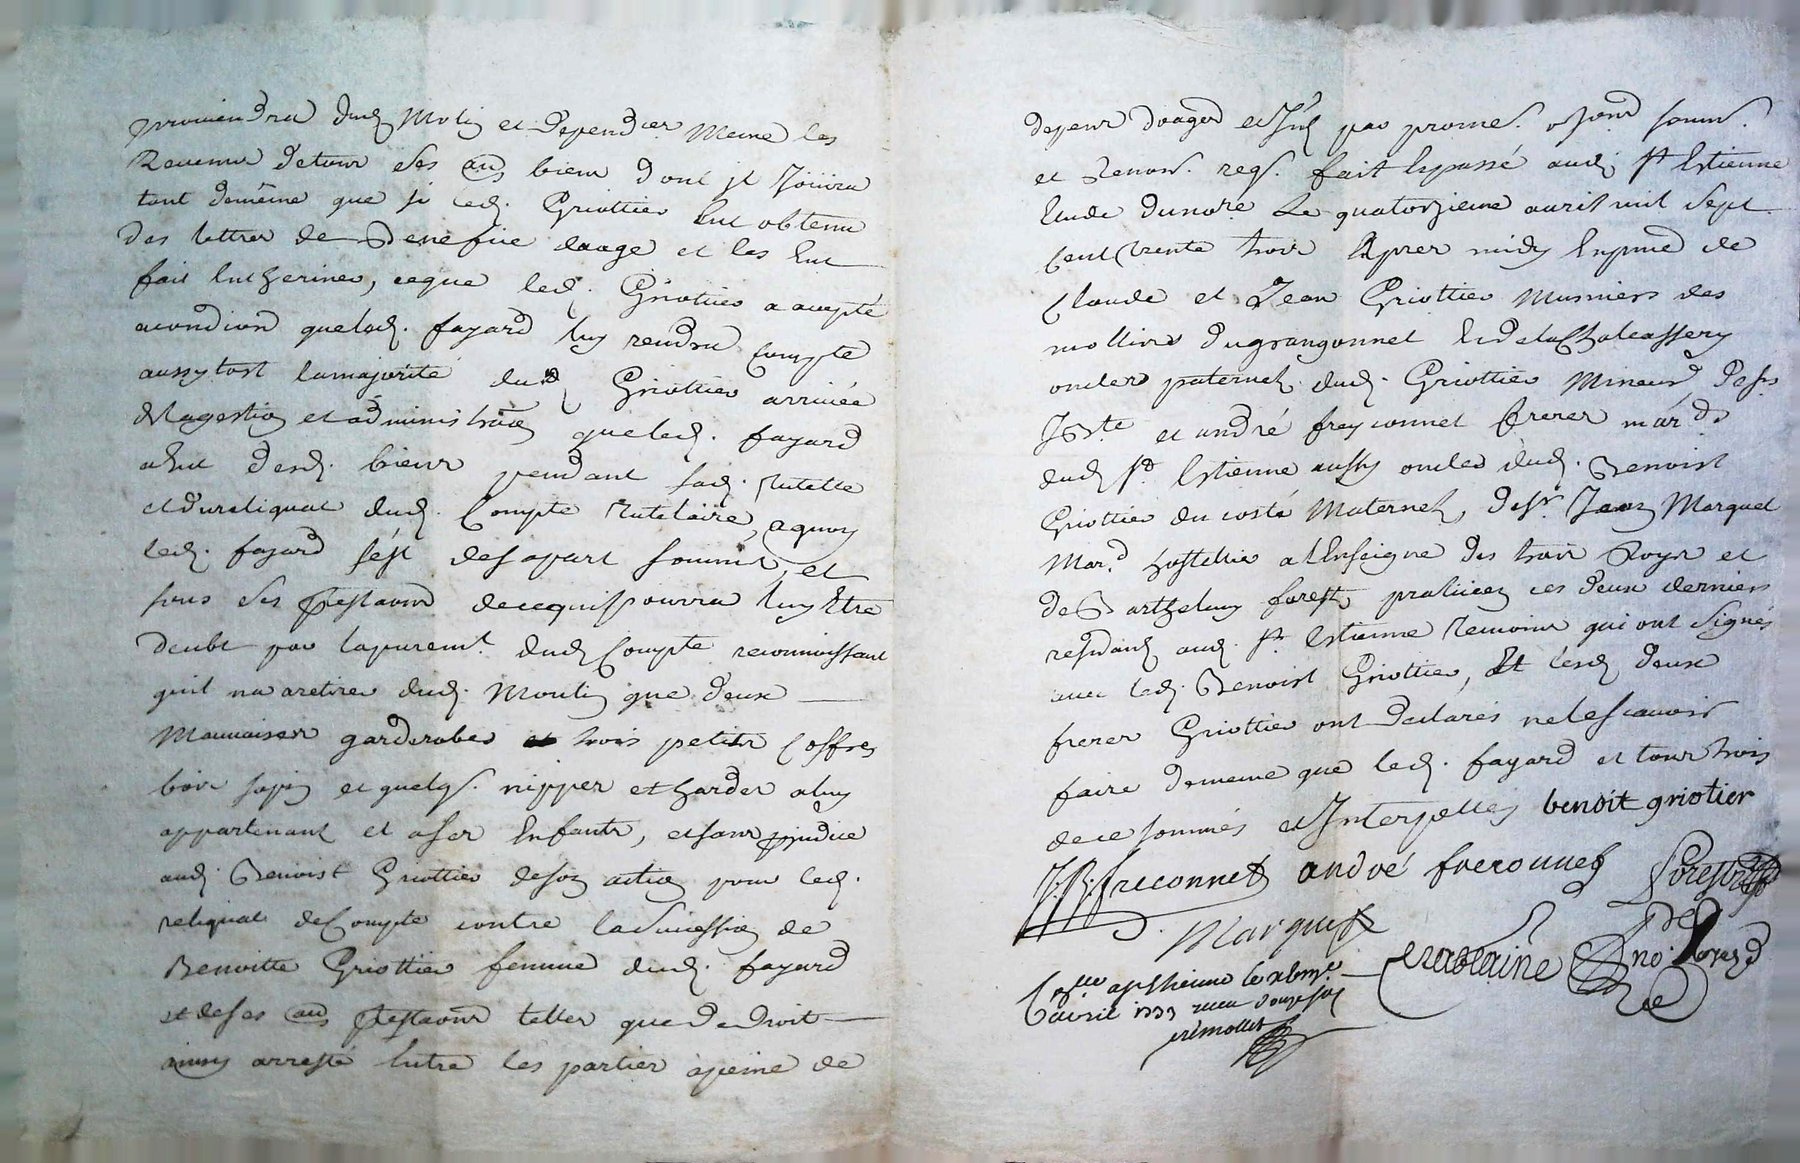 proviendra dud Molin et Dependces Meme les
Revenus detous ses aus biens dont jl Joüira
tout demême que si led. Griottier Eut obtenu
des lettres de Benefice daage et les Eut
fait Entheriner, ceque led. Griottier a accepté
acondion queled. fayard luy rendra Compte
aussytost lamajorité dud Griottier arrivée
delagestion et administraon queled. fayard
aEut desd. biens pendant lad. tutelle
etdureliquat dud. Compte tutelaire, aquoy
led. fayard s'est desapart soumis, et
sous ses protestaons decequi pourra luy Etre
deubt par laparemt. dud Compte reconnoissant
quil na aretirer dud. Moulin que deux
Mauvaises garderobes trois petits Coffres
bois sapin et quelqs. nippes et hardes aluy
appartenant et a ses Enfants, etsans prejudice
aud. Benoist Griottier deson action pour led.
reliquat deCompte contre lasuccession de
Benoitte Griottier femme dud. fayard
et deses aus protestaons telles quededroit
ainsy arresté Entre les parties apeine de
depens domages et Jnts par promes. obond soums.
et Renons. reqs. fait Epassé aud. St Estienne
Etude dunore Le quatorzieme avril mil sept
Cent trente trois Apres midy Enpnce de
Claude et Jean Griottier Musniers des
mollins dugrangonnet Et delaChaleassery
oncles paternels dud. Griottier Mineur Desrs
J Bte et andré freyconnet freres mards
dud St Estienne aussy oncles dud. Benoist
Griottier du costé Maternel, desr. Jean Marquet
Mard hostellier a lEnseigne des trois Roys et
deBarthelemy forest, praticien ces deux derniers
residants aud. St Estienne temoins qui ont signés
avec led. Benoist Griottier, Et lesd deux
freres Griottier ont declarés nelescavoir
faire dememe que led. fayard et tous trois
dece sommés et Interpellés benoit griotier
J. B. freconnet andré freconnet forest
Marquet
Controllé a St Etienne le
avril 1733 receu douze sols